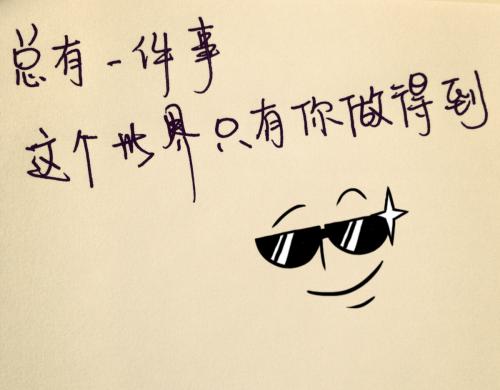 总有一件事
这个世界只有你做得到